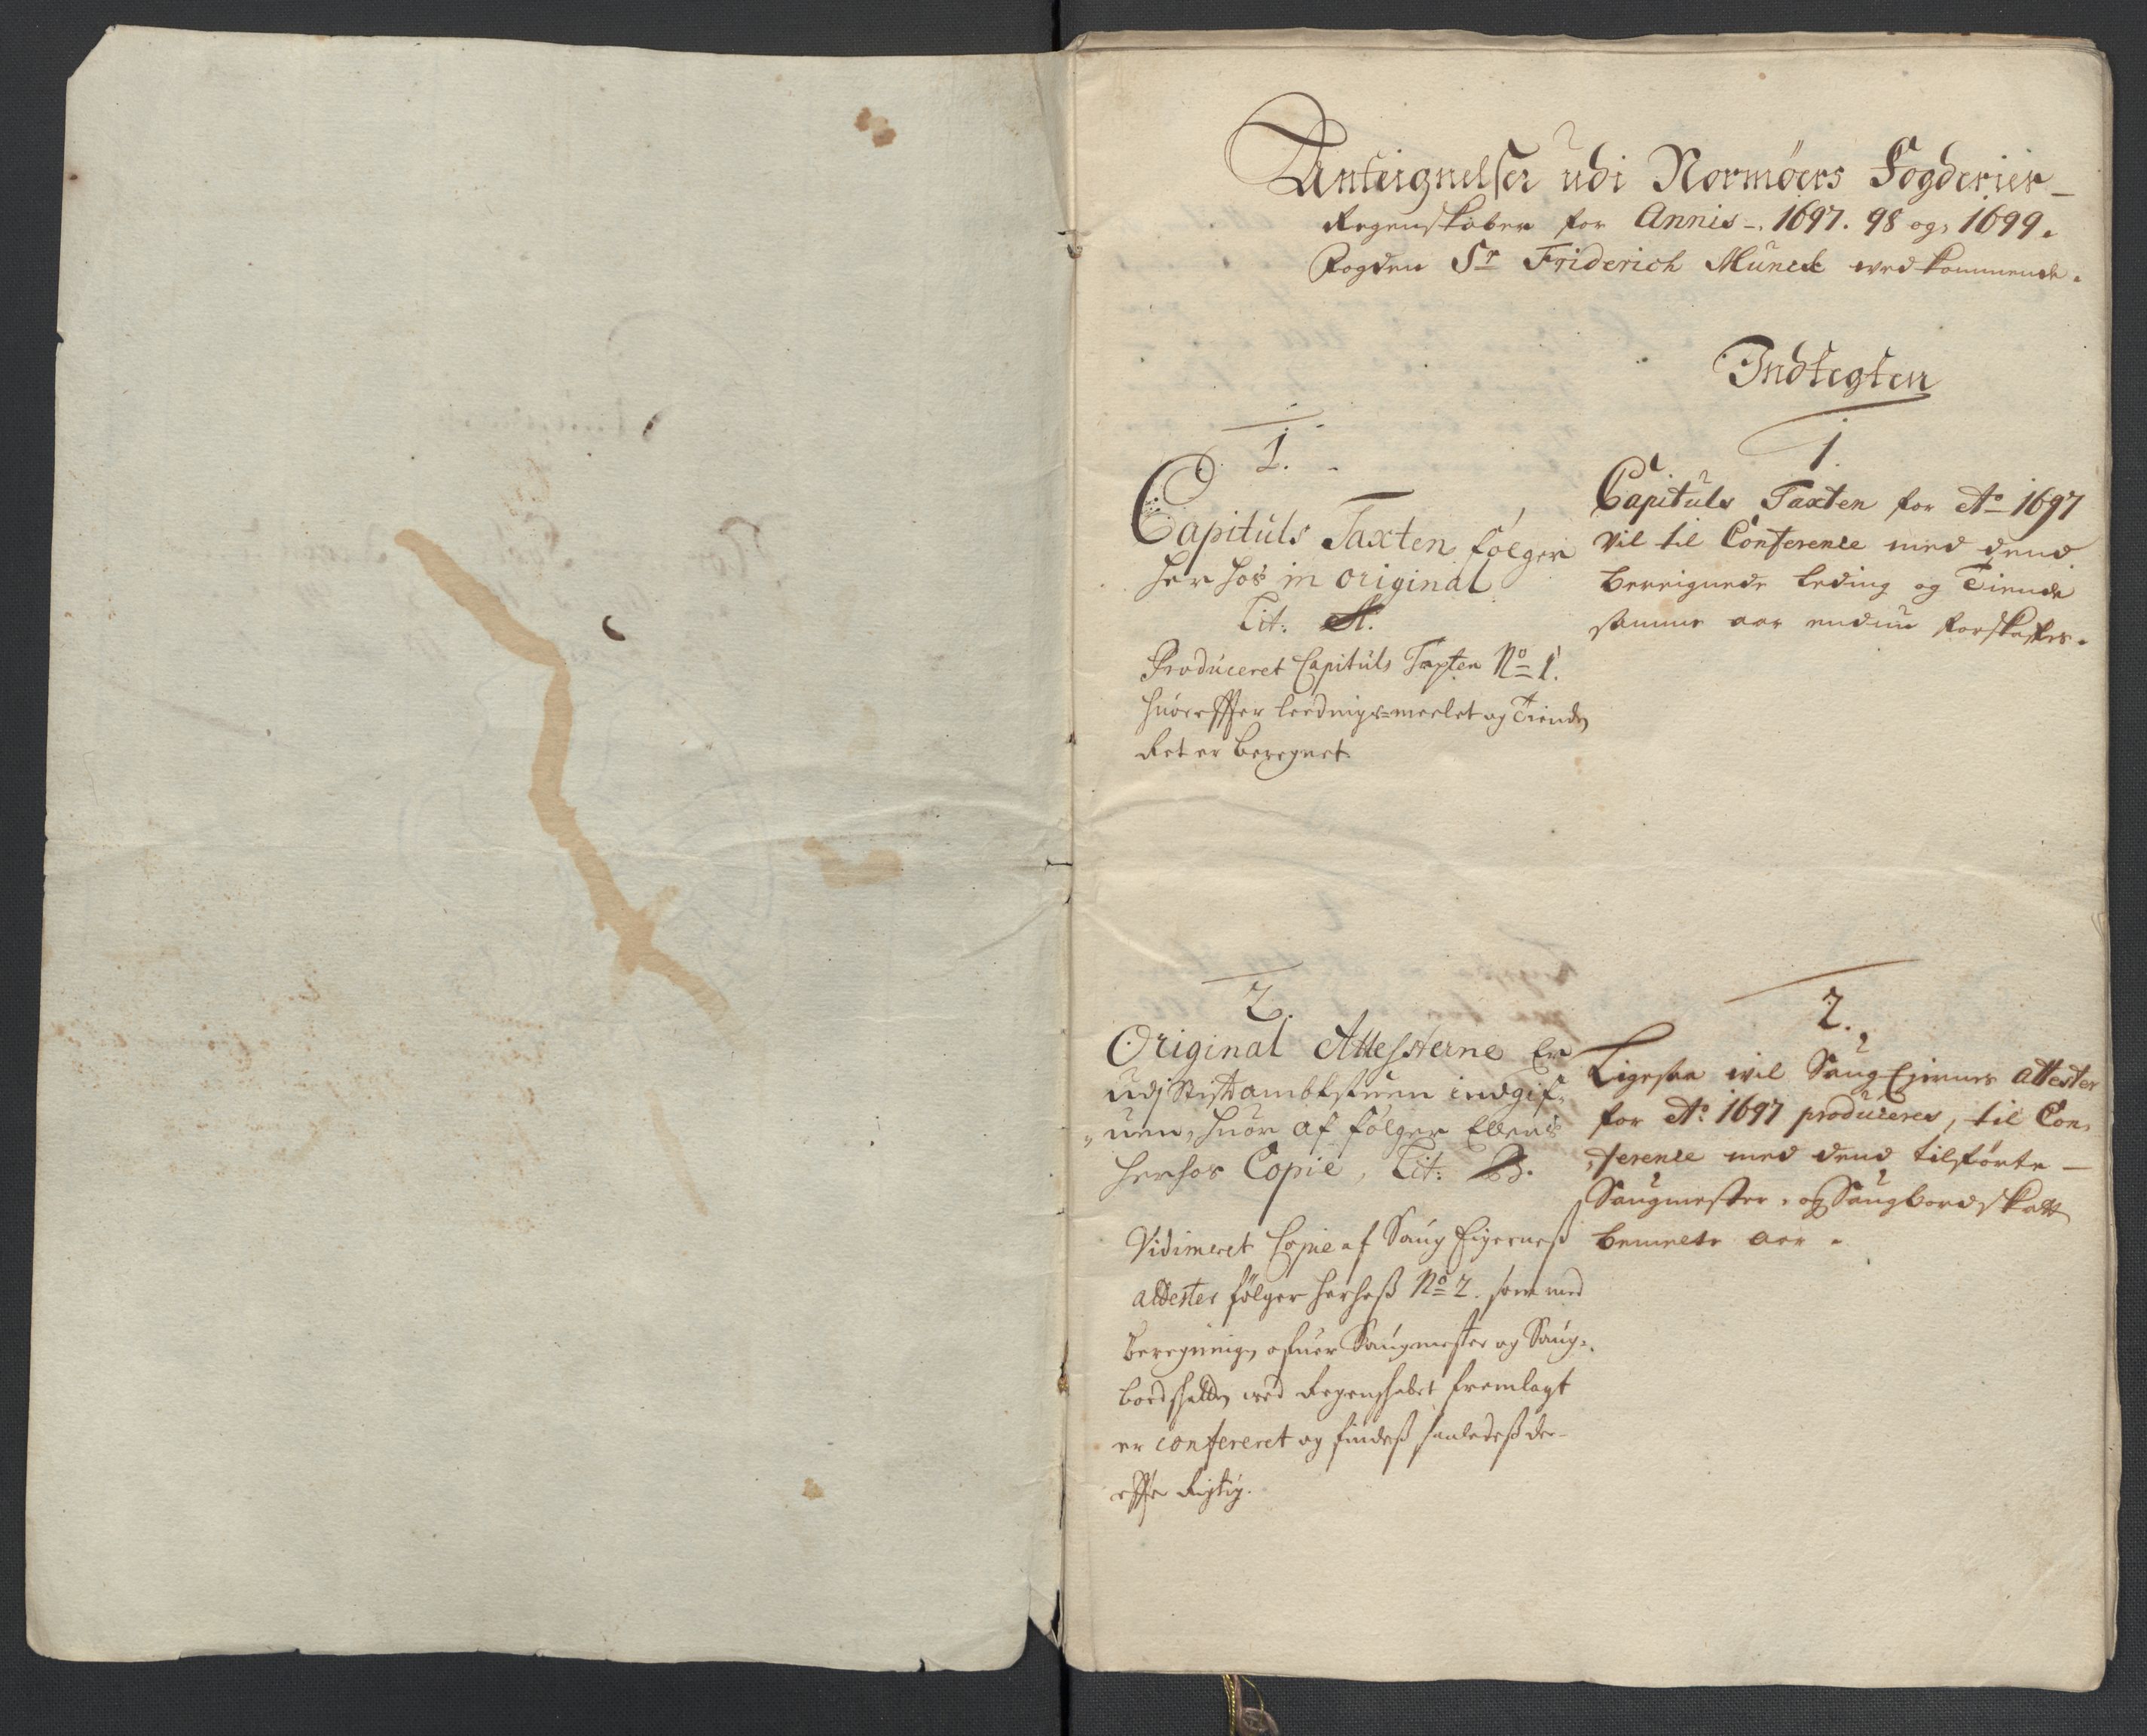 Anteignelser udi Normøers Fogderier
Regenskaber for Annis 1697. 98 og 1699.
Fogden Sr Friderich Munck vedkommende.
Indtegten
1.
Capituls Taxten følger
her hos in original
Lit: A.
Produceret Capituls Taxten No 1.
huoreffter leedings-meelet og Tienden
Ret er beregnet.
1.
Capituls Taxten for Ao 1697
vil til Conference med dend
bereignede leding og Tiende
samme aar endnu forskaffes.
2.
Original Attesterne Er
udj Stiftambtstuen indgif-
"uen, huor af følger
herhos Copie, Lit: B.
Vidimeret Copie af Saug Eigerneß
attester følger herhoß No 2. som med
beregning ofuer Saugmester og Saug-
bordskatten ved Regenskabet fremlagt
er confereret og findeß saaledeß der-
effter Rigtig.
2.
Ligesaa vil Saug Ejernes attester
for Ao 1697 produceres, til Con-
ference med dend tilførte
Saugmester- og Saugbordskatt
bemelte aar.